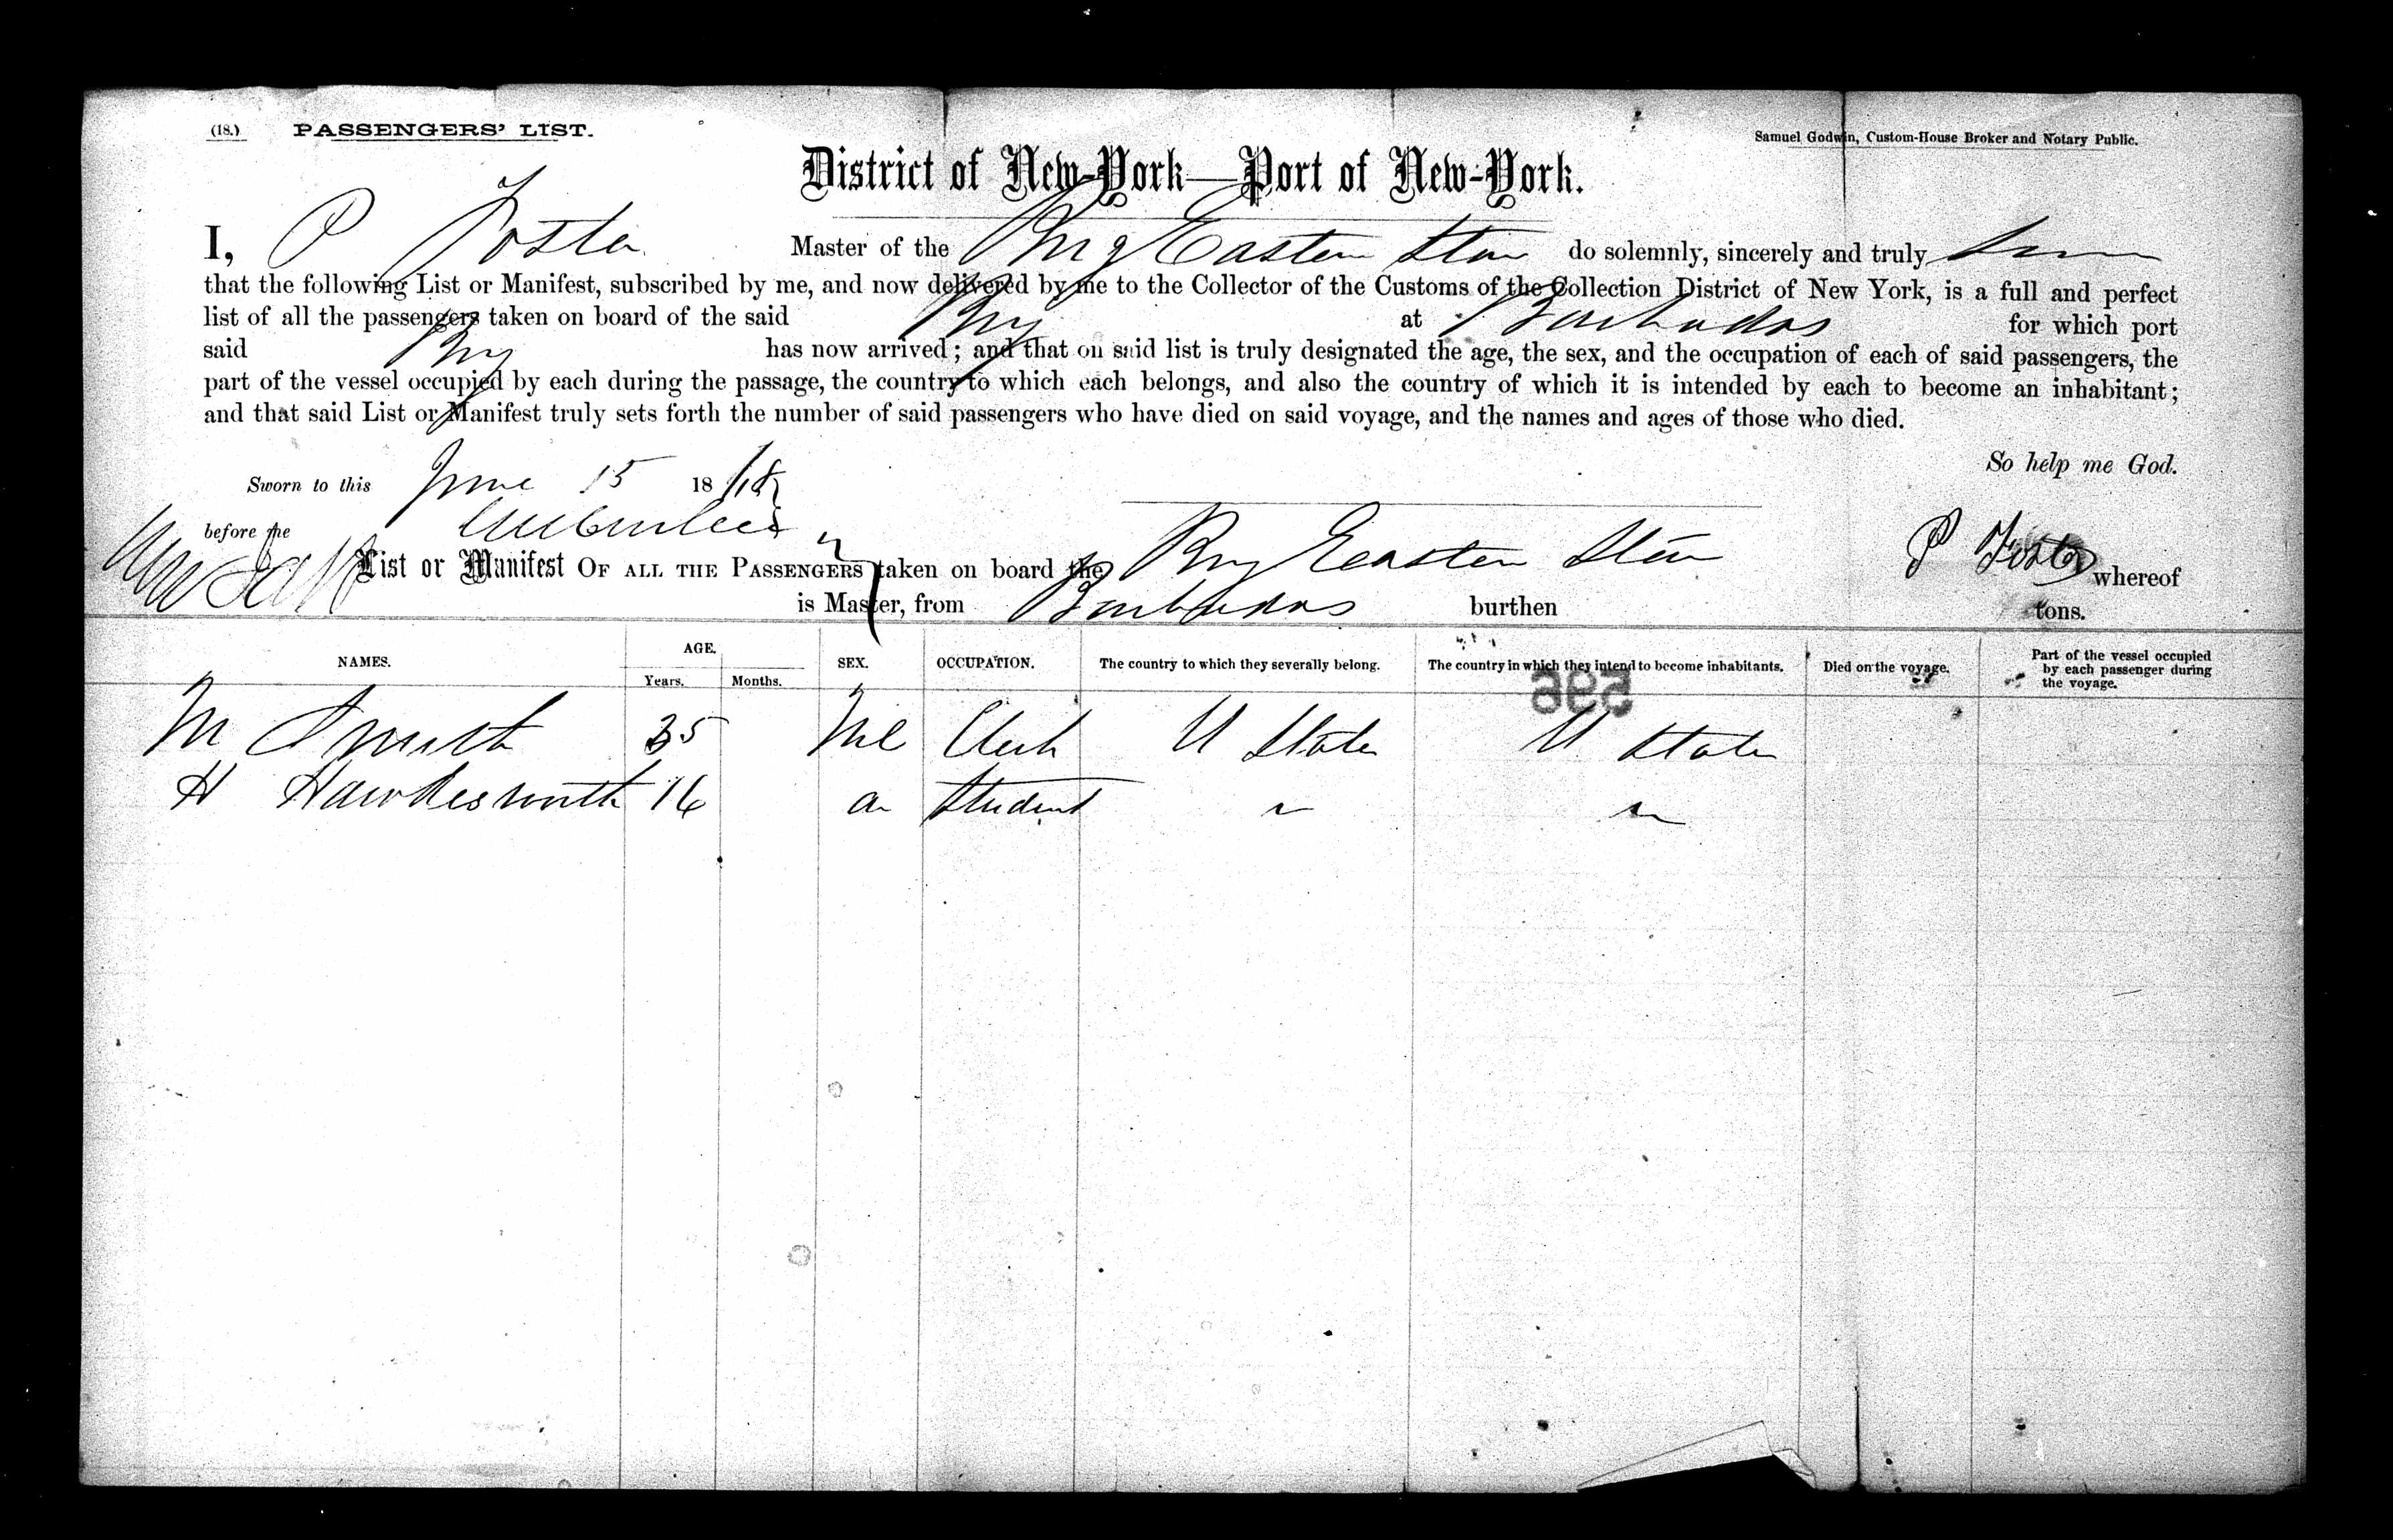 (18.) PASSENGERS' LIST.
Samuel Godwin, Custom-House Broker and Notary Public.
District of New-York—Port of New-York.
I, P Foster Master of the Brig Eastern Star do solemnly, sincerely and truly
that the following List or Manifest, subscribed by me, and now delivered by me to the Collector of the Customs of the Collection District of New York, is a full and perfect
list of all the passengers taken on board of the said Brig at Barbados for which port
said Brig has now arrived; and that on said list is truly designated the age, the sex, and the occupation of each of said passengers, the
part of the vessel occupied by each during the passage, the country to which each belongs, and also the country of which it is intended by each to become an inhabitant;
and that said List or Manifest truly sets forth the number of said passengers who have died on said voyage, and the names and ages of those who died.
So help me God.
Sworn to this June 15 18
before me
List or Manifest OF ALL THE PASSENGERS taken on board the Brig Eastern Star P Foster whereof
is Master, from Barbados burthen tons.
NAMES. AGE. SEX. OCCUPATION. The country to which they severally belong. The country in which they intend to become inhabitants. Died on the voyage. Part of the vessel occupied by each passenger during the voyage.
Years. Months.
596
M Smith 35 Ml Clerk U States U States
H Hawkesworth 16 Student